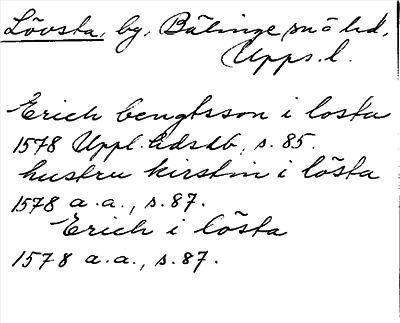 Lövsta, by, Bälinge sn ö hd,
Upps. l.
Erich bengtsson i losta
1578 Uppl. hdsdb, s. 85.
hustru kirstin i lõsta
1578 a. a., s. 87.
Erich i lõsta
1578 a. a., s. 87.